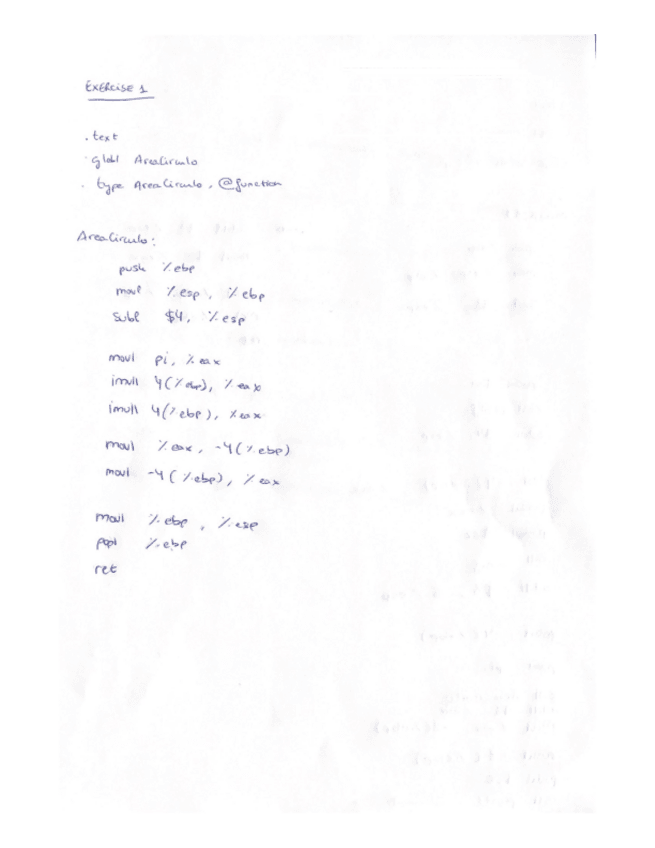 EXERCISE 1
.text
.globl AreaCirculo
.type AreaCirculo, @function
AreaCirculo:
push %ebp
movl %esp, %ebp
subl $4, %esp
movl pi, %eax
imull 4(%ebp), %eax
imull 4(%ebp), %eax
movl %eax, -4(%ebp)
movl -4(%ebp), %eax
movl %ebp, %esp
popl %ebp
ret